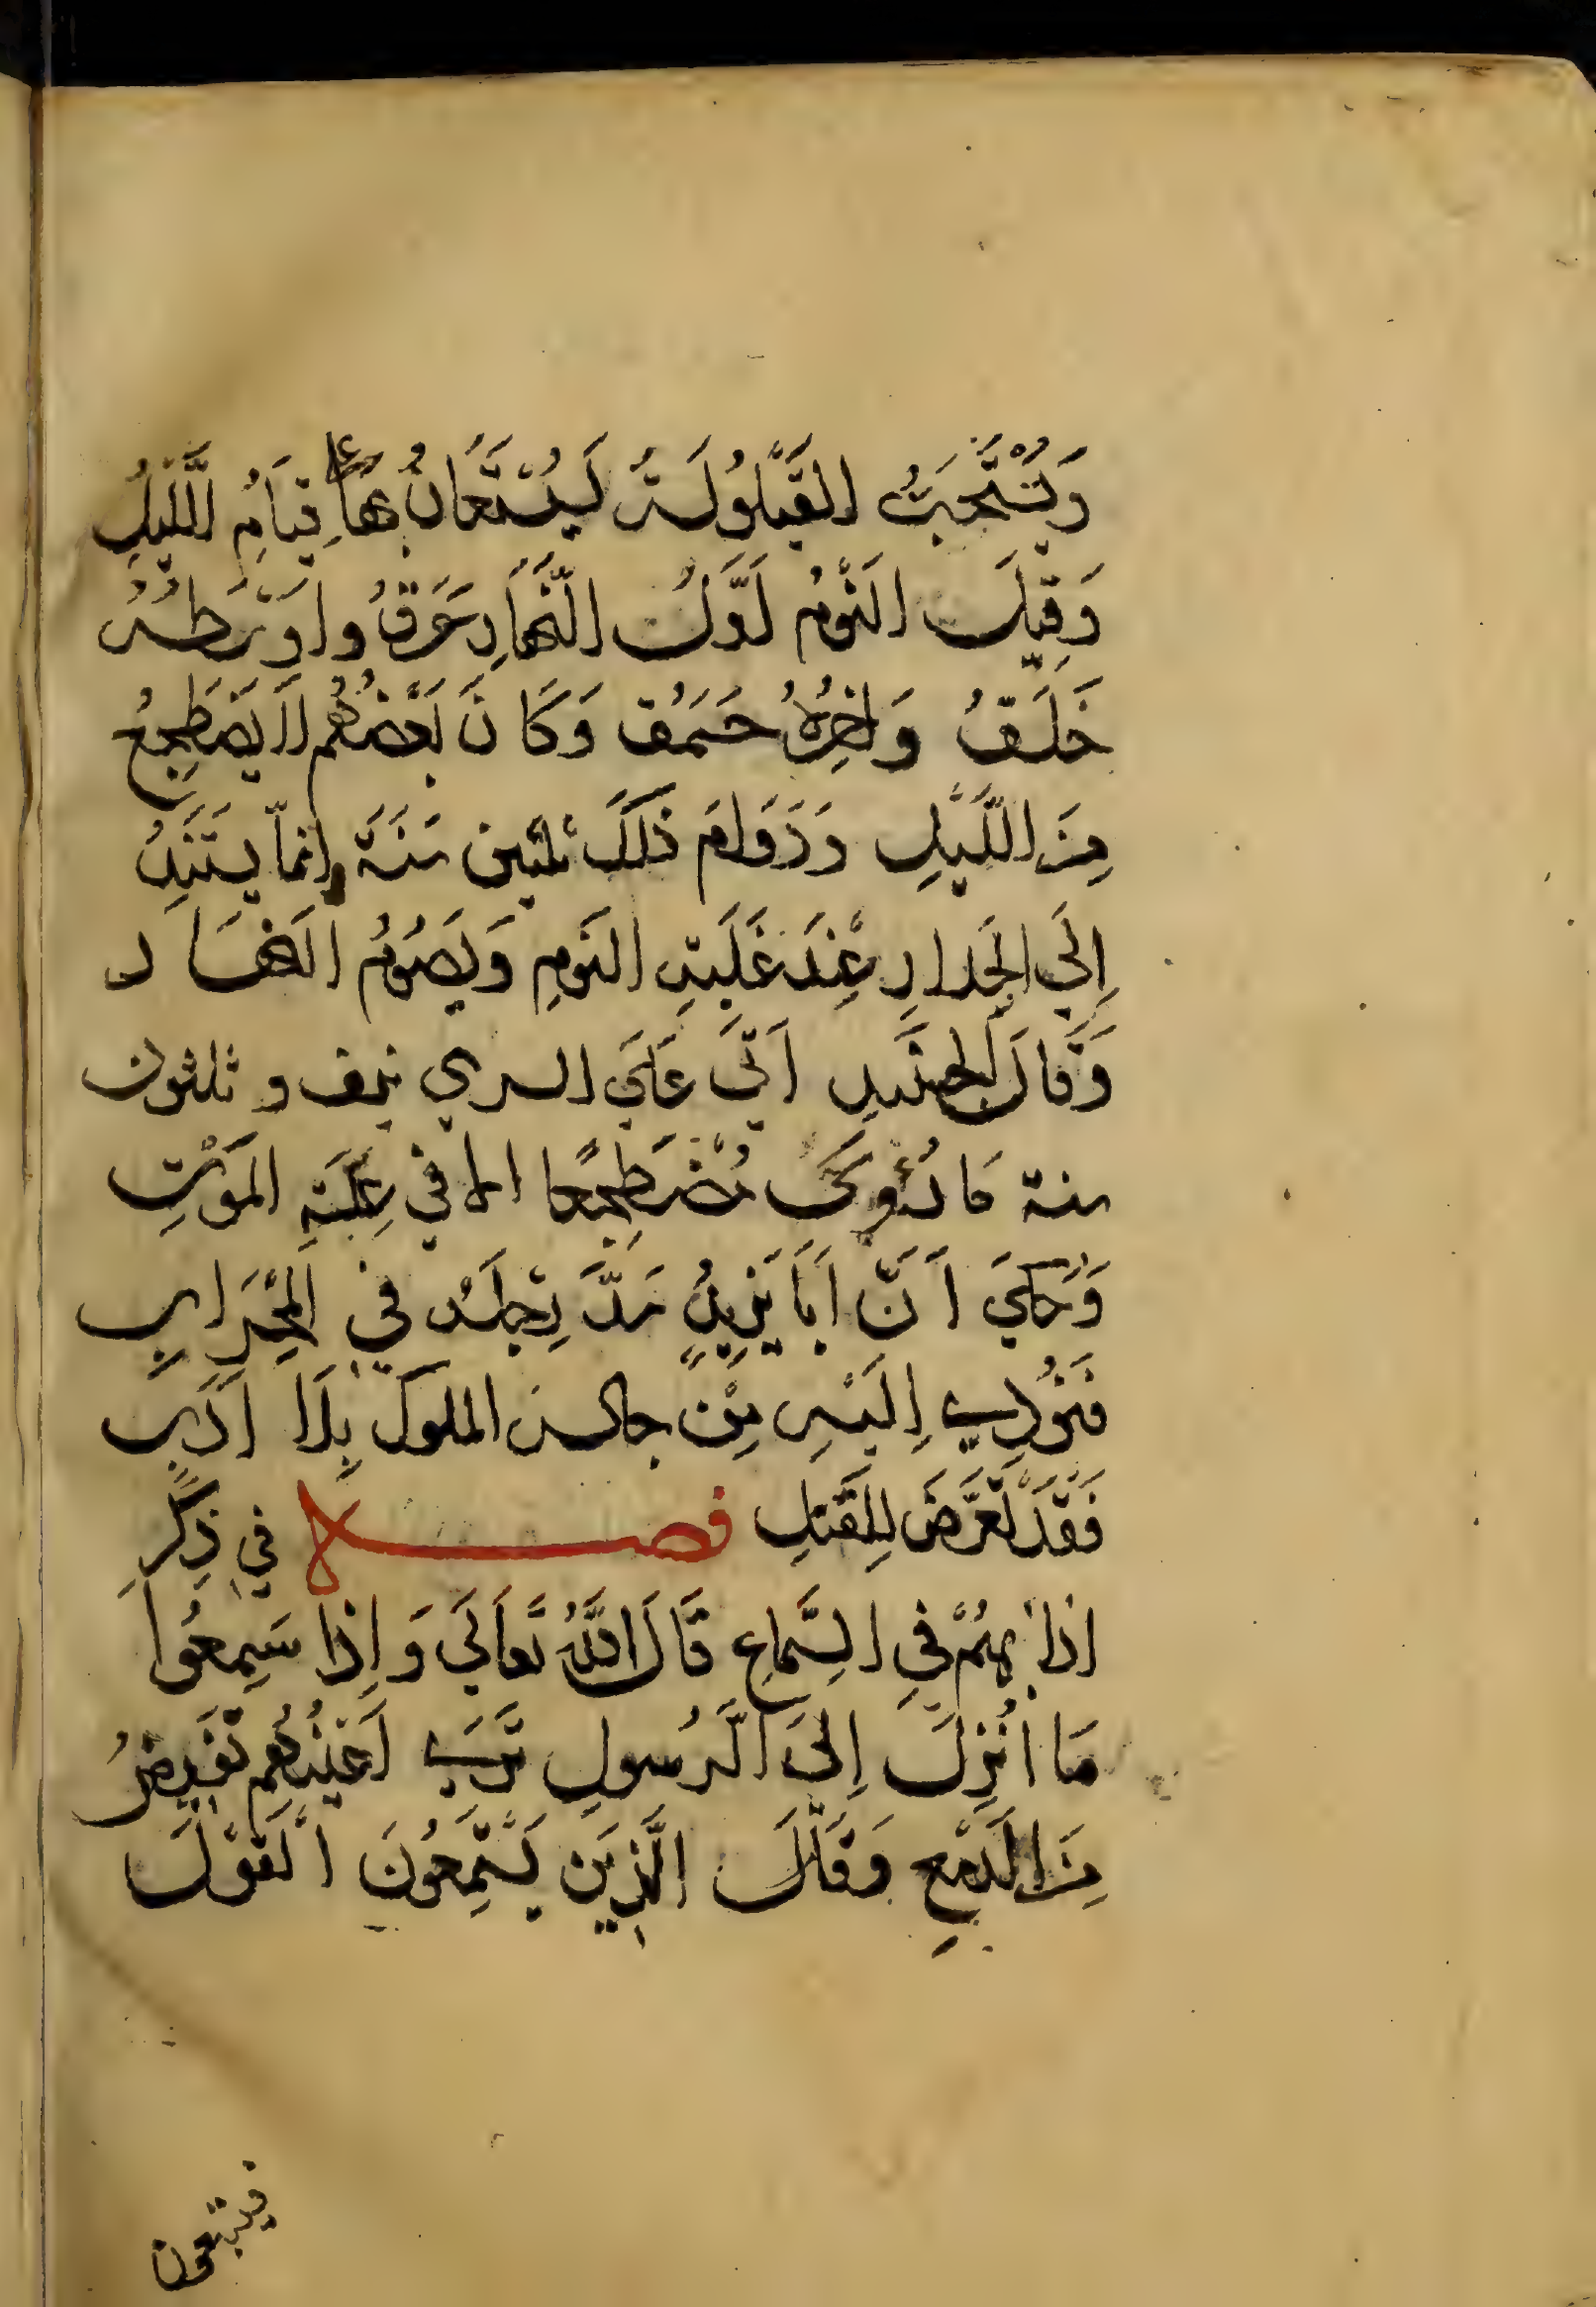 وَيُسْتَحَبُّ القَيْلُولَةُ لَيُسْتَعَانُ بِهَا على قِيَامِ اللَّيْلِ
وَقِيلَ النَوْمُ اَوَّلَ النَّهَارِ خَرَقُ واوْسَطُهُ
خَلَقُ وَاخِرُهُ حَمَقُ وَكَانَ بَعْضُهُم لَا يَضْطَجِعُ
مِنَ اللَّيْلِ وَدَوَامَ ذَلَكَ ثلثين سَنَةً انمّا يستَنَدُ
اِلَي الجَدارِ عِنْدَ غَلَبَةِ النَومِ وَيَصُوُمُ النَّهَارَ
وَقَالَ الجنَيدِ اَتَى عَلَيَ السري نيف وثلثون
سنة مَا رُؤى مُضْطَجِعًا الا في عِلَّةِ المَوْتِ
وَحُكيَ اَنَّ اَبَا يَزِيدٍ مَدَّ رِجْلَهُ في المِحْرَابِ
فَنُوُدِي اِلَيْهِ مِنْ جالسَ الملوك بِلَا اَدَبٍ
فَقَدْ تَعَرَّضَ لِلقَتلِ فصــل في ذِكْرِ
ادابهُمْ فِي السَّمَاعِ قَالَ اللَّهُ تَعَالَي وَاِذَا سَمِعُوا
مَا اُنْزِلَ اِلَى الرَّسُولِ تَرَى اَعْيُنُهُم تَفَيِضُ
مِنَ الدَّمْعِ وَقَالَ الَّذِيَن يَسْتَمِعُونَ القَوْلَ
فيتبعون